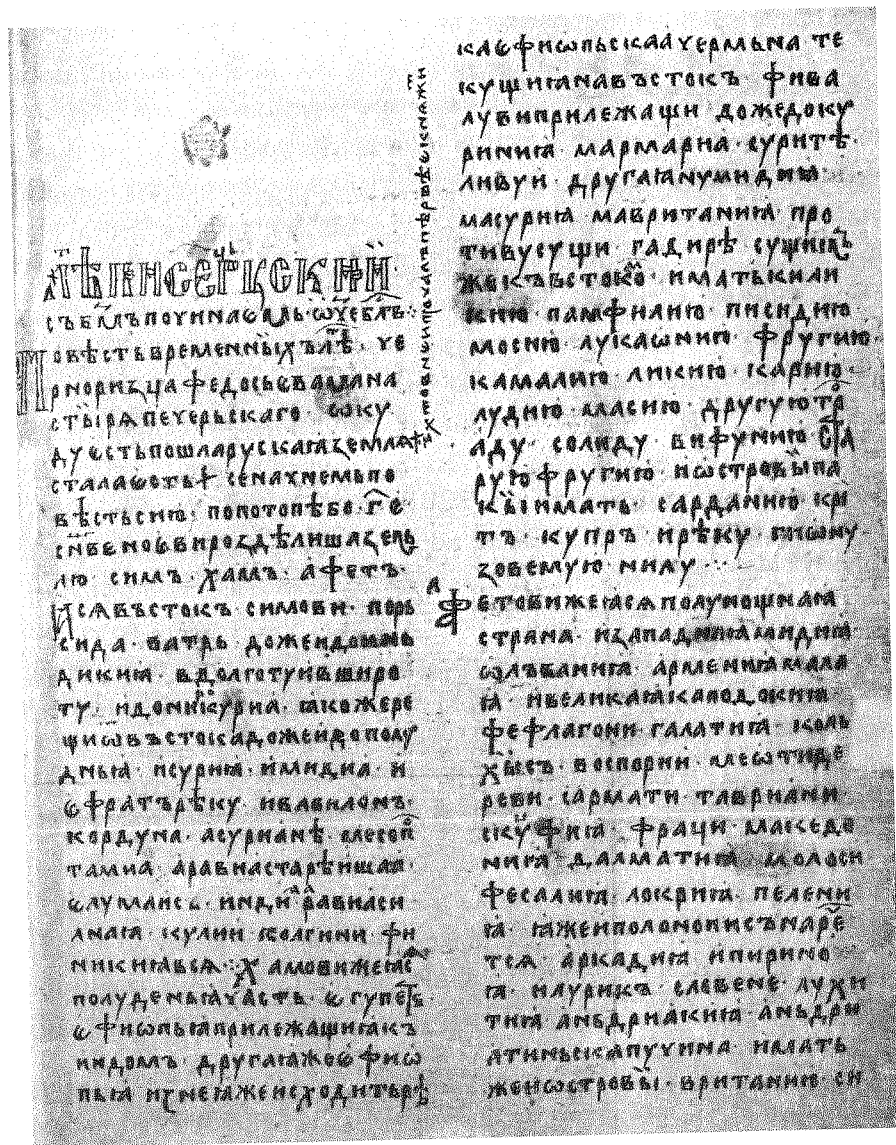 ЛѢПИСЕЦЬ РꙊСКИЙ ·
съ бг҃мъ починаємь. ѿч҃е блв҃ъ ·:·
Повѣсть временныхъ лѣт҇ · че
рноризца федосьєва мана
стырѧ печерьскаго · ѿку
ду єсть пошла рускаꙗ землѧ
хто в неи почалъ пѣрвѣє кнѧжит
стала єсть · и се начнемь по
вѣсть сию · по потопѣ бо · г҃ · є
сн҃ве ноєви роздѣлиша земъ
лю симъ · хамъ · афетъ ·
И ꙗсѧ въстокъ симови · перь
сида · ватрь доже и до инь
дикиꙗ · в долготу и в широ
ту · и до никурна · ꙗкоже ре
щи ѿ въстока доже и до полу
дньꙗ · и сурна · и мидиа · и
єфратъ рѣку · и вавилонъ ·
кордуна · асурианѣ · месопо
тамиа · аравиа старѣишаꙗ ·
єлумансъ · инди · равиꙗ си
лнаꙗ · кулии · колгини · фи
никиꙗ всѧ ·:· Хамови же ꙗс҇
полуденьꙗ часть · єгупетъ ·
єфиѡпьꙗ прилежащиꙗ къ
индомъ · другаꙗ же єфиѡ
пьꙗ из неꙗже исходить рѣ
ка єфиѡпьскаа чермьна те
кущиꙗ на въстокъ · фива
луви прилежащи доже до ку
риниꙗ · мармариа · суритѣ ·
ливуи · другаꙗ нумидиꙗ ·
масуриꙗ · мавританиꙗ · про
тиву сущи гадирѣ · сущихъ
же къ въстокомъ имать кили
кию · памфилию · писидию
мосию · лукаѡнию · фругию ·
камалию · ликию · карию ·
лудию · масию · другую тро
аду · солиду · вифунию · ста
рую фругию · и ѡстровы па
кы имать · сарданию · кри
тъ · купръ · и рѣку гиѡну
зовемую нилу ·:·
Афетови же ꙗсѧ полунощнаꙗ
страна · и западнаꙗ мидиꙗ
ѡлъваниꙗ · армениꙗ мала
ꙗ · и великаꙗ каподокиꙗ ·
фефлагони · галатиꙗ · коль
хысъ · воспории · меѡти · де
реви · сармати · тавриани ·
скуфиꙗ · фраци · македо
ниꙗ · далматиꙗ · молоси
фесалиꙗ · локриꙗ · пелени
ꙗ · ꙗже и полопонисъ наре
тсѧ · аркадиꙗ · ипирино
ꙗ · илурикъ · словене · лухи
тиꙗ · аньдриакиꙗ · аньдри
атиньска пучина · имать
же и ѡстровы · вританию · си